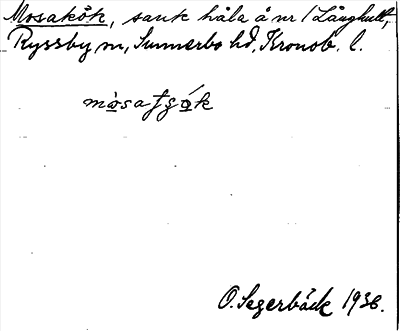 Mosakök, sank håla å nr 1 Långhult,
Ryssby sn, Sunnerbo hd, Kronob. l.
O. Segerbäck 1936.